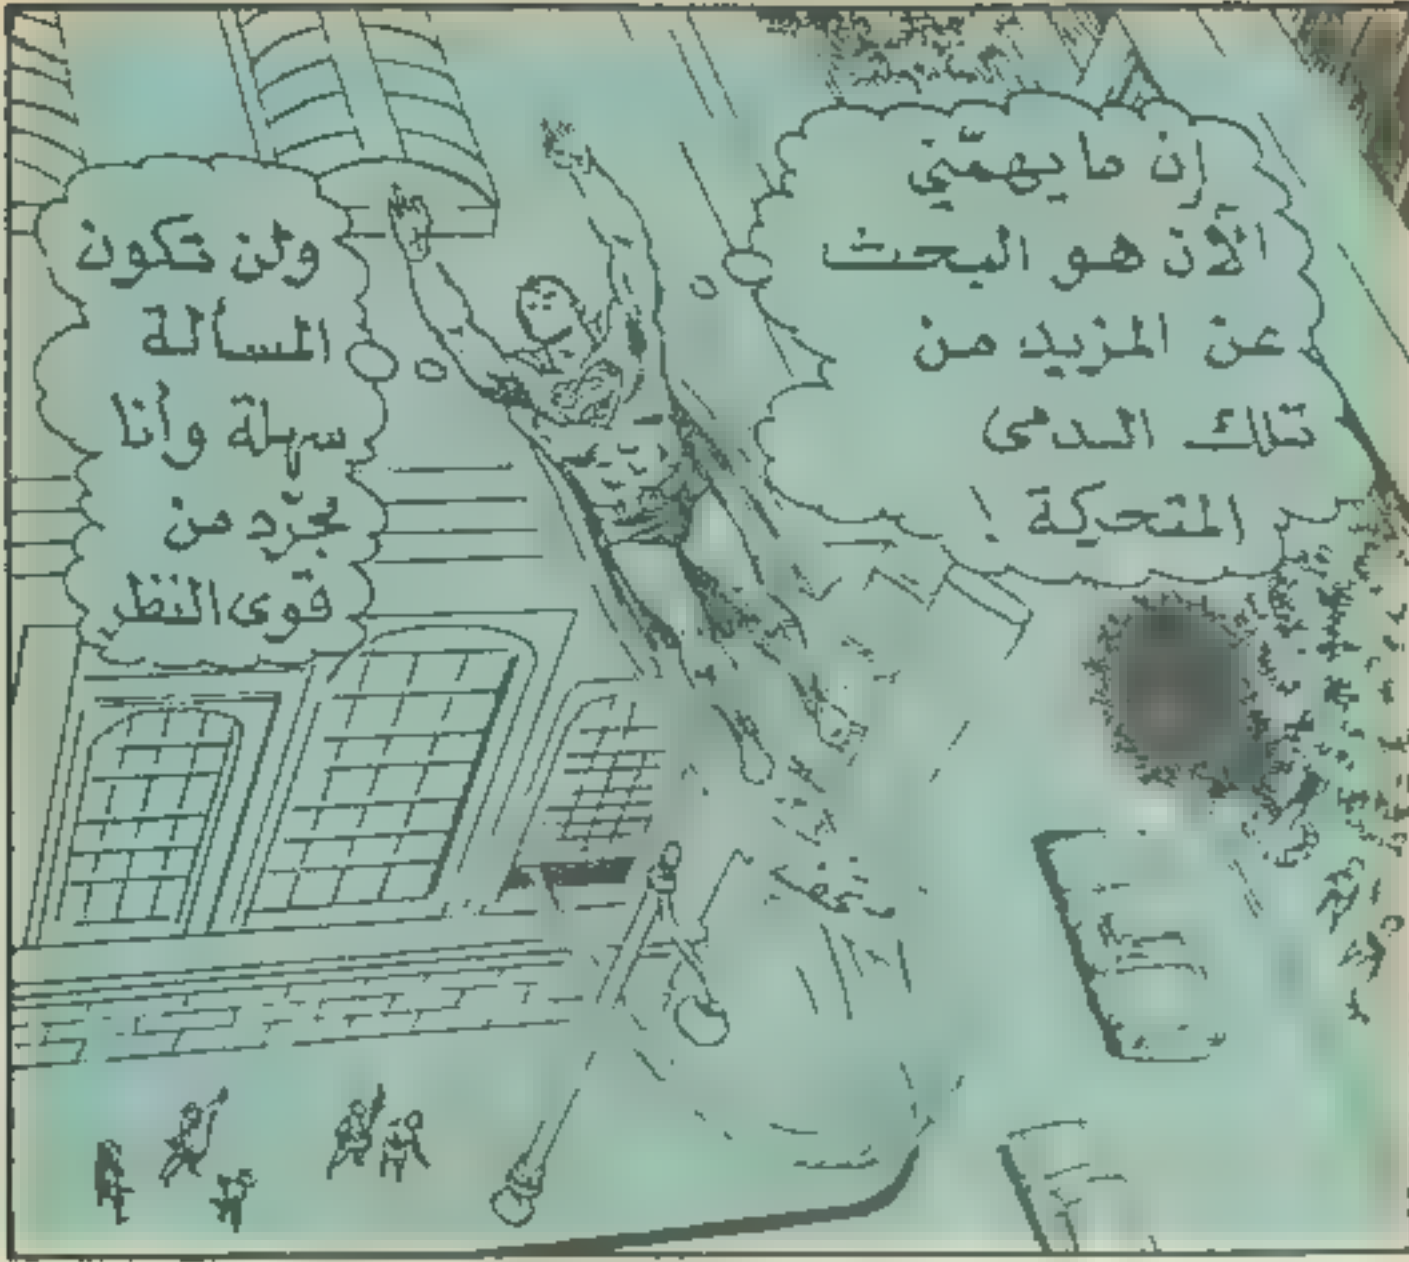 إن ما يهمّني
الآن هو البحث
عن المزيد من
تلك الدمى
المتحركة !
ولن تكون
المسألة
سهلة وأنا
مجرّد من
قوى النظر